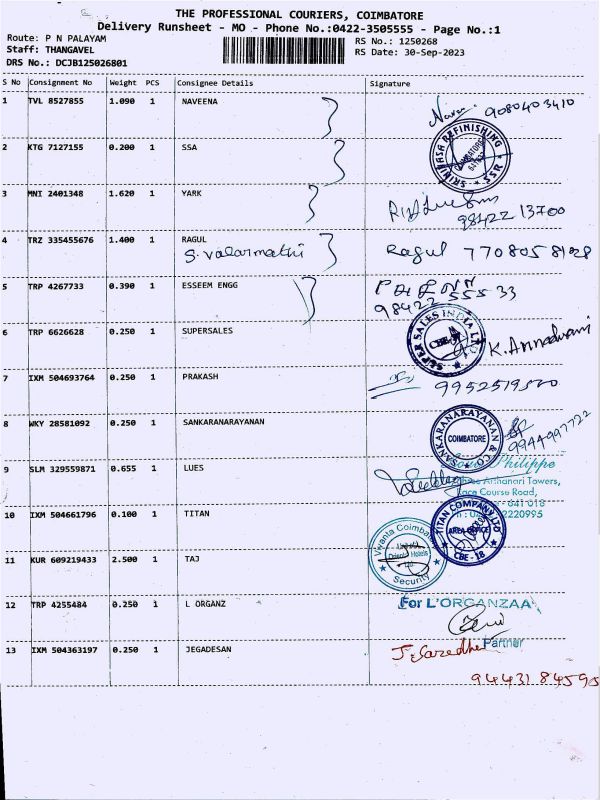 THE PROFESSIONAL COURIERS, COIMBATORE
Delivery Runsheet - MO - Phone No.:0422-3505555 - Page No.:1
Route: P N PALAYAM
Staff: THANGAVEL
DRS No.: DCJB125026801
RS No.: 1250268
RS Date: 30-Sep-2023
S No Consignment No Weight PCS Consignee Details Signature
1 TVL 8527855 1.090 1 NAVEENA
9080403410
2 KTG 7127155 0.200 1 SSA
SRINIVASA REFINISHING
COIMBATORE
SSR
3 MNI 2401348 1.620 1 YARK
98422 13700
4 TRZ 335455676 1.400 1 RAGUL
S. Valarmathi
Ragul
5 TRP 4267733 0.390 1 ESSEEM ENGG
98422 55533
6 TRP 6626628 0.250 1 SUPERSALES
SUPER SALES INDIA LTD
CBE
7 IXM 504693764 0.250 1 PRAKASH
8 WKY 28581092 0.250 1 SANKARANARAYANAN
SANKARANARAYANAN & CO
COIMBATORE
9944997722
9 SLM 329559871 0.655 1 LUES
Philippe
Arthanari Towers,
Race Course Road,
641 018
2220995
10 IXM 504661796 0.100 1 TITAN
TITAN COMPANY LTD
AREA OFFICE
CBE - 18
11 KUR 609219433 2.500 1 TAJ
Vivanta Coimbatore
Hotels
Ltd
Security
12 TRP 4255484 0.250 1 L ORGANZ
For L'ORGANZAA
Partner
13 IXM 504363197 0.250 1 JEGADESAN
94431 84595